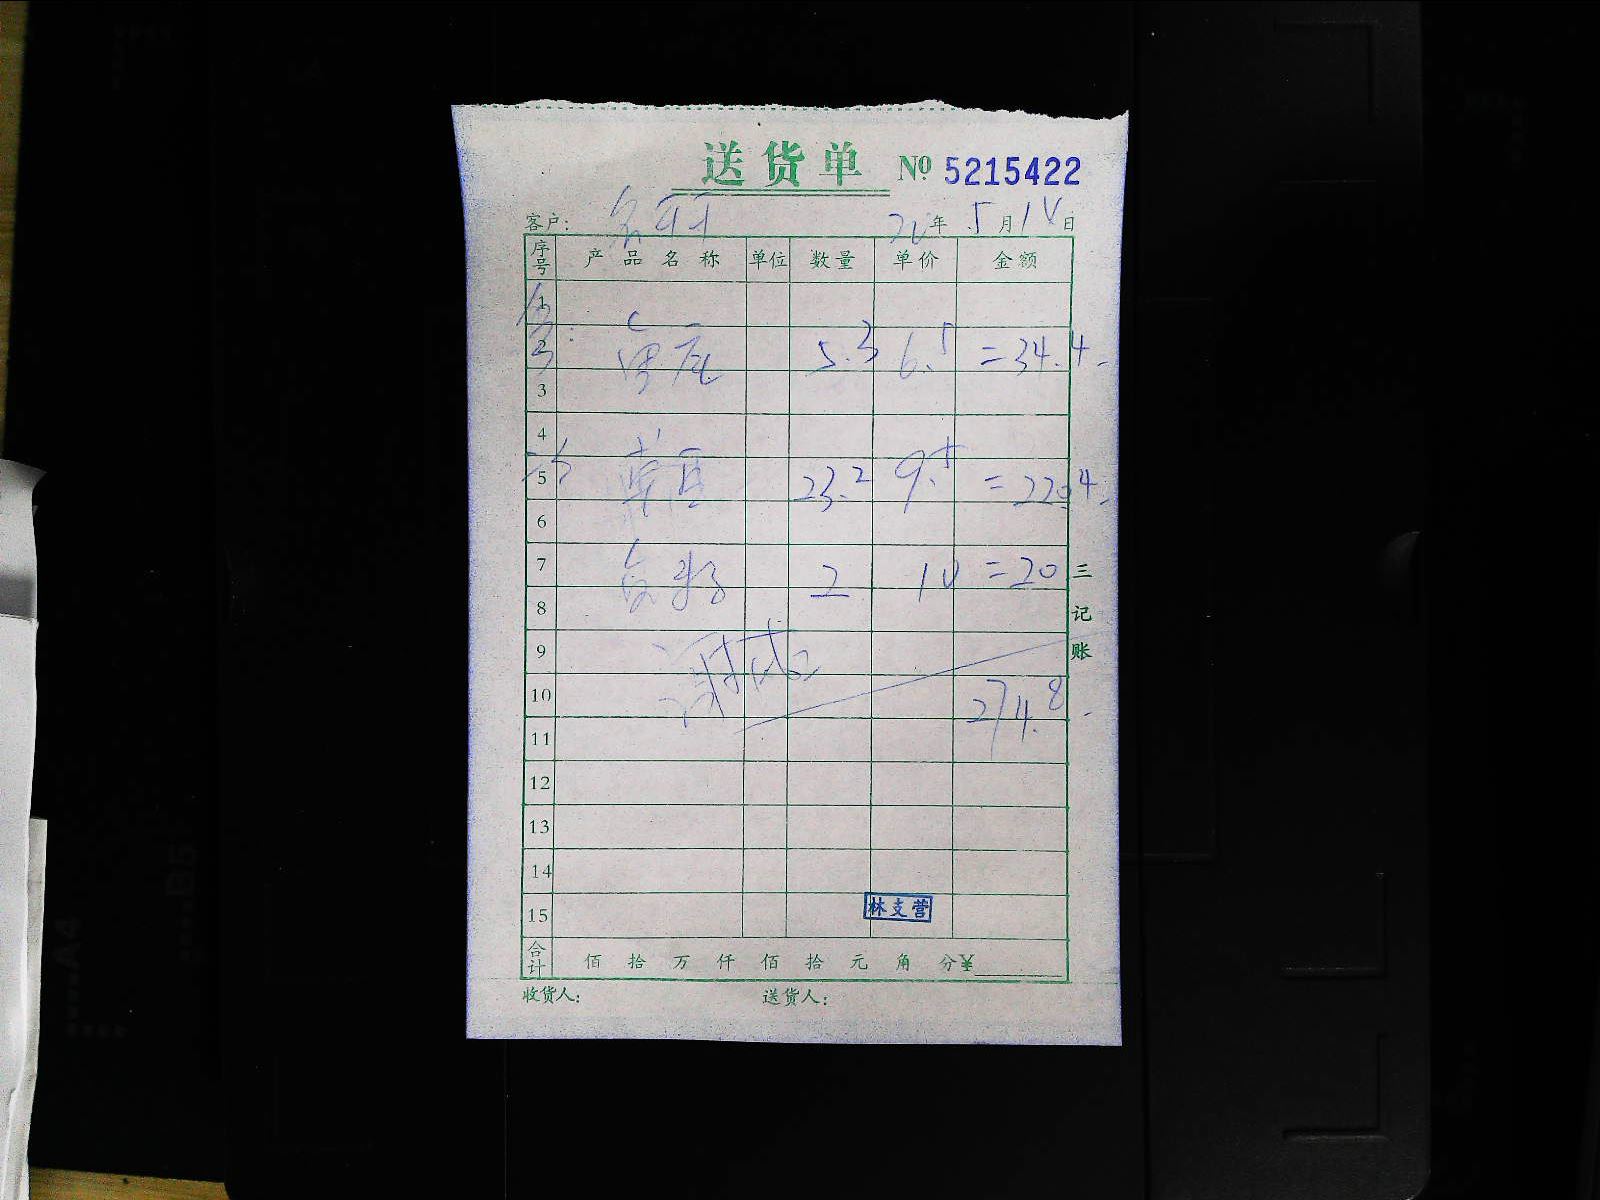 送货单 № 5215422
客户： 20年5月10日
序号 产品名称 单位 数量 单价 金额
1
2 5.3 6.5 =34.4
3
4
5 23.2 9.5 =220.4
6
7 2 10 =20
8
9
10 274.8
11
12
13
14
15
林支营
合计 佰 拾 万 仟 佰 拾 元 角 分 ¥
收货人： 送货人：
三记账